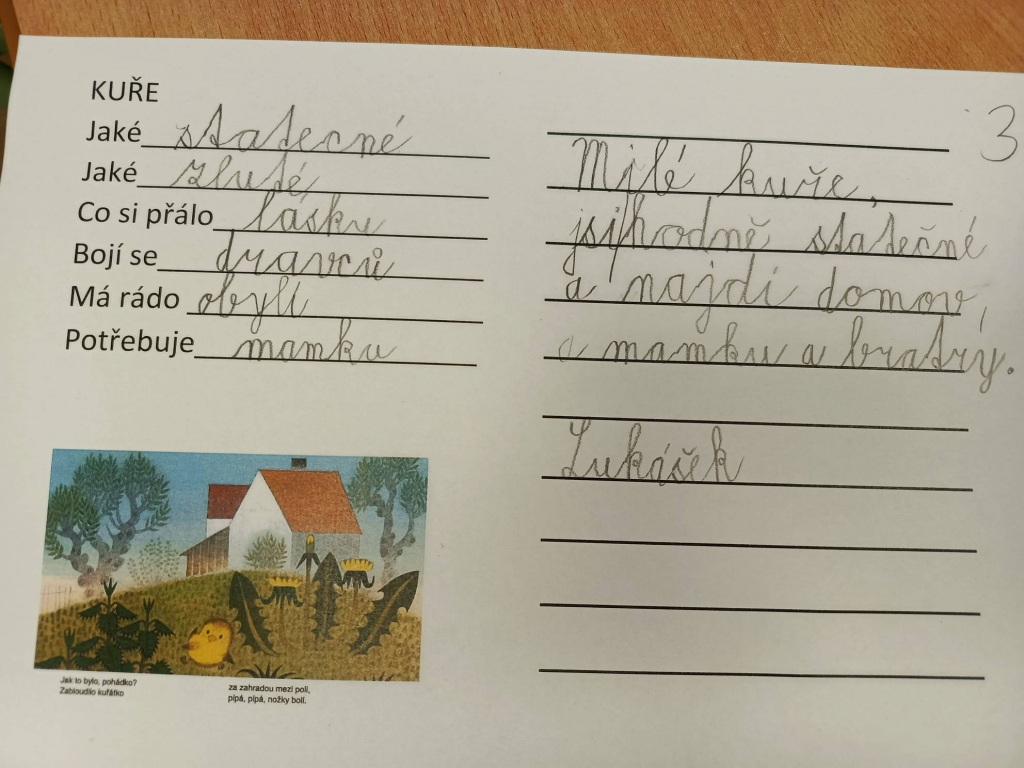 KUŘE
Jaké statecné
Jaké zluté
Co si přálo lásku
Bojí se dravců
Má rádo obylí
Potřebuje mamku
Jak to bylo, pohádko?
Zabloudilo kuřátko
za zahradou mezi poli,
pípá, pípá, nožky bolí.
3
Milé kuře,
jsi hodně statečné
a najdi domov,
a mamku a bratry.
Lukášek